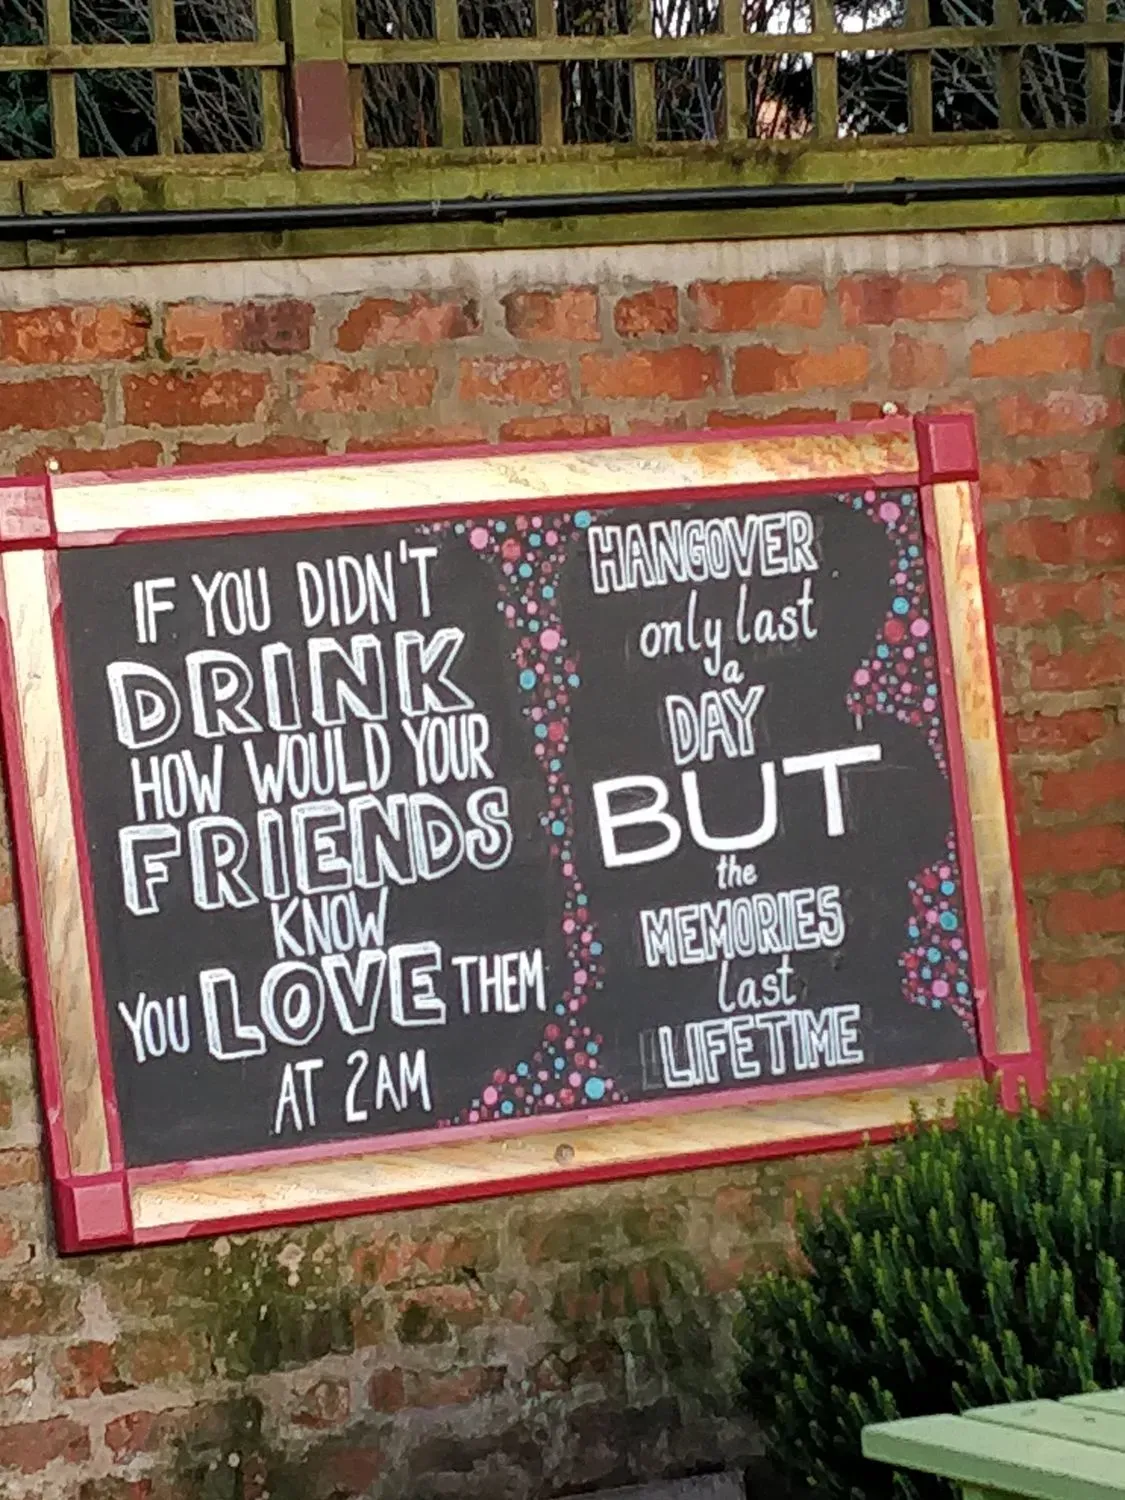 IF YOU DIDN'T
DRINK
HOW WOULD YOUR
FRIENDS
KNOW
YOU LOVE THEM
AT 2AM
HANGOVER
only last
a
DAY
BUT
the
MEMORIES
last
LIFETIME